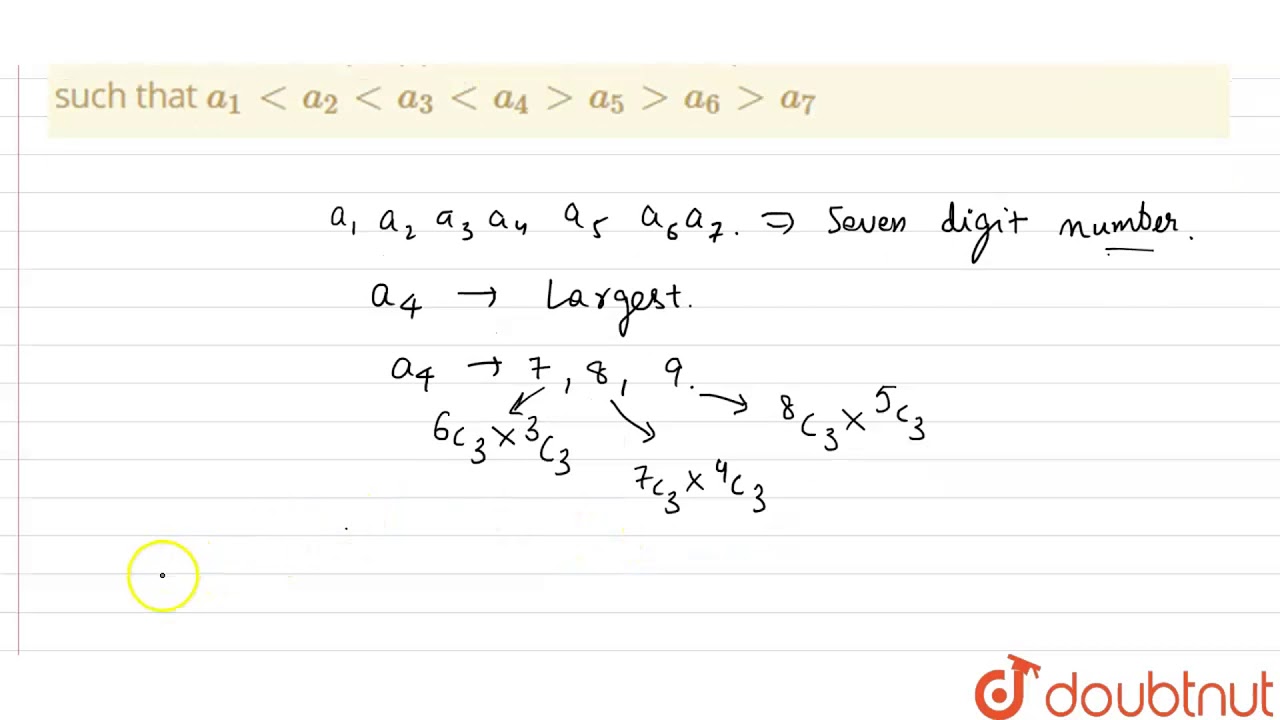 such that a₁ < a₂ < a₃ < a₄ > a₅ > a₆ > a₇
a₁ a₂ a₃ a₄ a₅ a₆ a₇. ⇒ Seven digit number.
a₄ → Largest.
a₄ → 7, 8, 9.
⁶C₃ × ³C₃
⁸C₃ × ⁵C₃
⁷C₃ × ⁴C₃
doubtnut